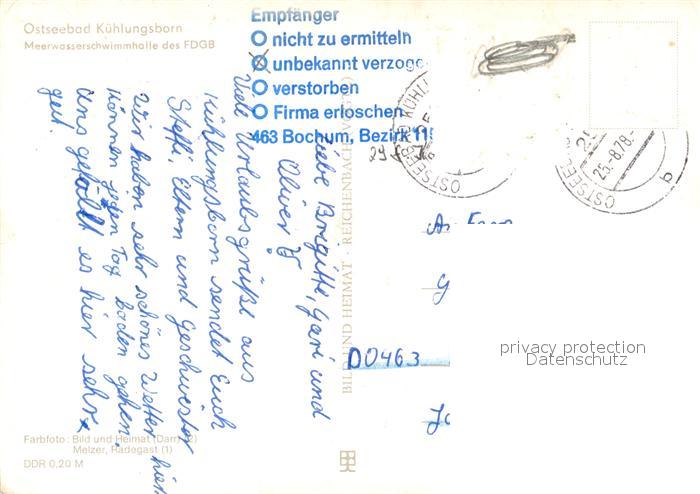 Ostseebad Kühlungsborn
Meerwasserschwimmhalle des FDGB
Empfänger
nicht zu ermitteln
unbekannt verzoge
verstorben
Firma erloschen
463 Bochum, Bezirk 115
Liebe Brigitte, Gari und
Oliver!
Viele Urlaubsgrüße aus
Kühlungsborn sendet Euch
Steffi, Eltern und Geschwister
Wir haben sehr schönes Wetter hier.
Können jeden Tag baden gehen.
Uns gefällt es hier sehr
gut.
BILD UND HEIMAT · REICHENBACH (VOGTL)
OSTSEEBAD KÜHL
OSTSEEB
25.-8.78.-
b
An Fam
G
DO463
Jo
privacy protection
Datenschutz
Farbfoto: Bild und Heimat (Darr) (2)
Melzer, Radegast (1)
DDR 0,20 M